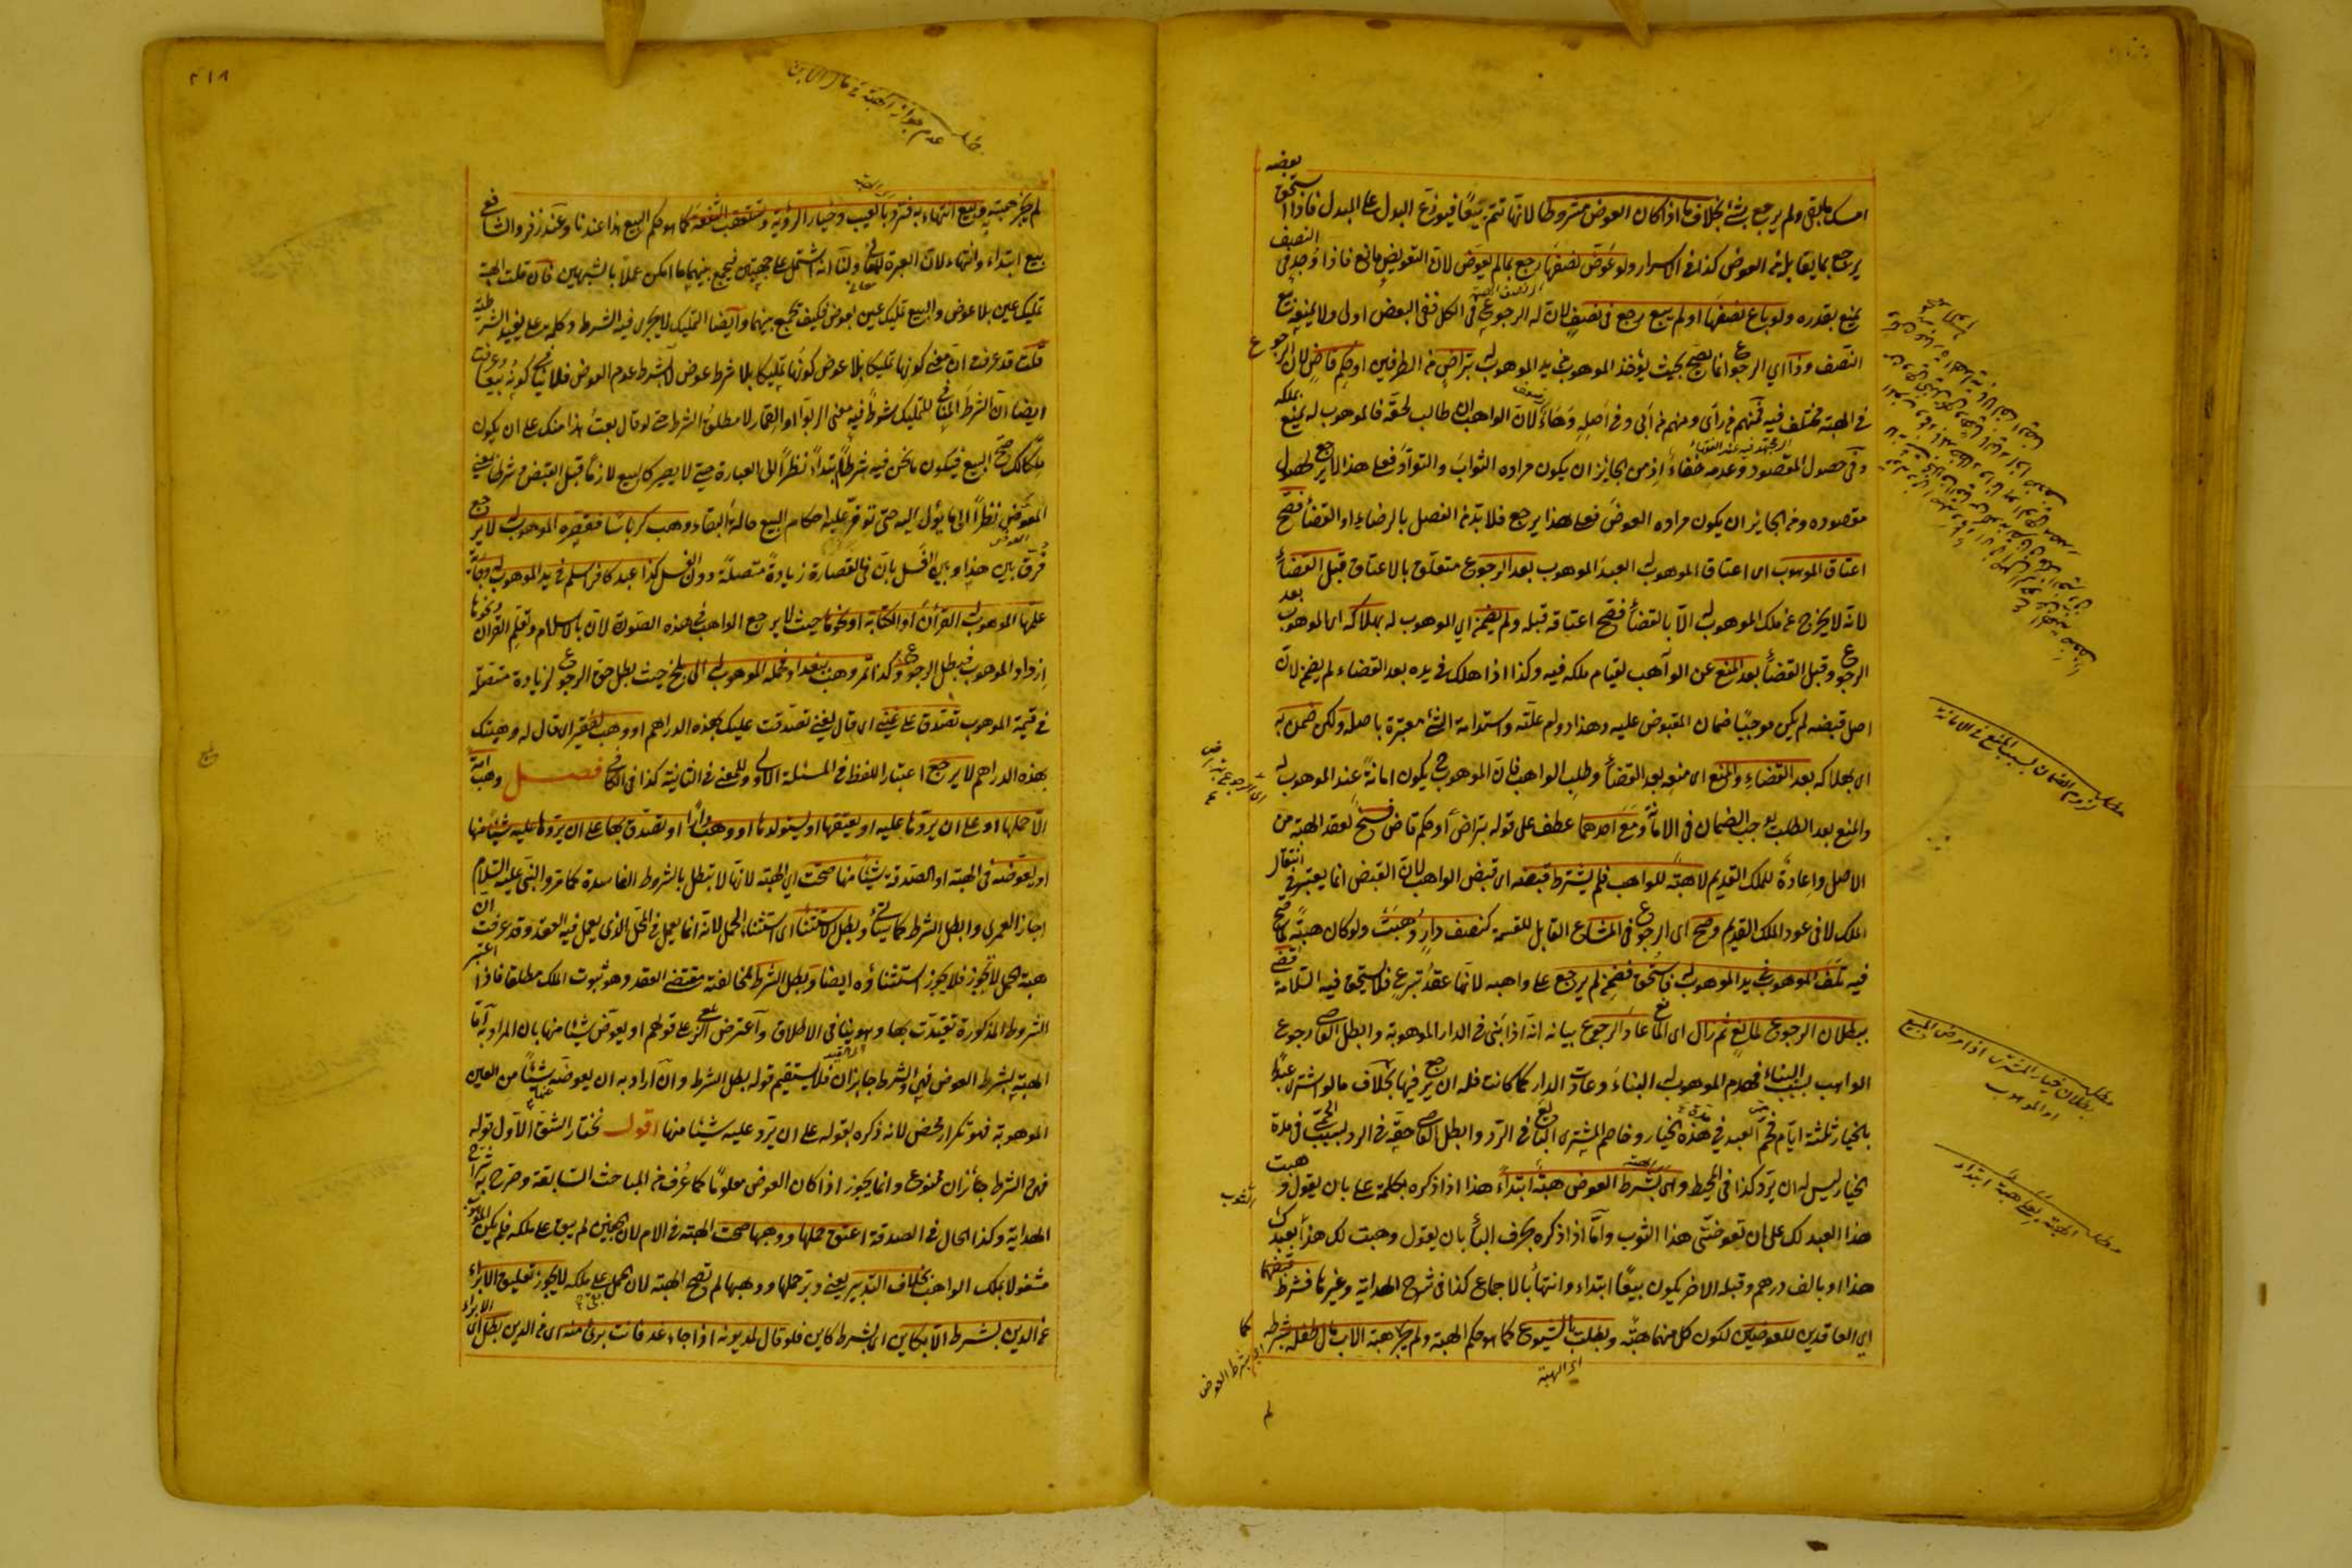 امسك ما بقى ولم يرجع بشئ بخلاف ما اذا كان العوض مشروطا لانها تتم بيعًا فيوزع البدل على المبدل فاذا استحق بعضه
يرجع بما يقابله من العوض كذا فى الاسرار ولو عوض نصفها رجع بما لم يعوض لان التعويض مانع فاذا وجد فى النصف
يمنع بقدره ولو باع نصفها او لم يبع رجع فى نصف لان له الرجوع فى الكل ففى البعض اولى ولا يمنعه بيع
النصف وذا اي الرجوع انما يصح بحيث يؤخذ الموهوب من يد الموهوب له بتراض من الطرفين او حكم قاض لان الرجوع
فى الهبة مختلف فيه فمنهم من رأى ومنهم من أبى وفى اصله وهاء لان الواهب ان طالب لحقه فالموهوب له يمنع بملكه
وفى حصول المقصود وعدمه خفاء اذ من الجائز ان يكون مراده الثواب والتوادد فعلى هذا لا يرجع لحصول
مقصوده ومن الجائز ان يكون مراده العوض فعلى هذا يرجع فلا بد من الفصل بالرضاء او القضاء فصح
اعتاق الموهوب اى اعتاق الموهوب له العبد الموهوب بعد الرجوع متعلق بالاعتاق قبل القضاء
لانه لا يخرج عن ملك الموهوب له الا بالقضاء فصح اعتاقه قبله ولم يضمن اي الموهوب له بهلاكه اى الموهوب بعد
الرجوع وقبل القضاء بعد المنع عن الواهب لقيام ملكه فيه وكذا اذا هلك فى يده بعد القضاء لم يضمن لان
اصل قبضه لم يكن موجبًا ضمان المقبوض عليه وهذا دوام عليه واستدامة الشئ معتبرة باصله ولكن ضمن به
اى بهلاكه بعد القضاء والمنع اى منعه بعد القضاء وطلب الواهب فان الموهوب ح يكون امانة عند الموهوب له
والمنع بعد الطلب يوجب الضمان فى الامانة ومع احدهما عطف على قوله بتراض او حكم قاض فسخ لعقد الهبة من
الاصل واعادة للملك القديم لا هبة للواهب فلم يشترط قبضه اى قبض الواهب لان القبض انما يعتبر فى انتقال
الملك لا فى عود الملك القديم وصح اى الرجوع فى المشاع القابل للقسمة كنصف دار وهبت ولو كان هبة لما صح
فيه تلف الموهوب فى يد الموهوب له فاستحق فضمن لم يرجع على واهبه لانها عقد تبرع فلا يستحق فيه السلامة قضى
ببطلان الرجوع لمانع ثم زال اى المانع عاد الرجوع بيانه انه اذا بنى فى الدار الموهوبة وابطل القاضى رجوع
الواهب بسبب البناء فهدم الموهوب له البناء وعادت الدار كما كانت فله ان يرجع فيها بخلاف ما لو اشترى عبدًا
بالخيار ثلثة ايام فحم العبد فى مدة الخيار وخاصم المشترى البائع فى الرد وابطل القاضى حقه فى الرد بسبب الحمى فى مدة
الخيار ليس له ان يرد كذا فى المحيط وهى بشرط العوض هبة ابتداء هذا اذا ذكره بكلمة على بان يقول وهبت
هذا العبد لك على ان تعوضنى هذا الثوب واما اذا ذكره بحرف الباء بان يقول وهبت لك هذا بعبدك
هذا او بالف درهم وقبله الاخر يكون بيعًا ابتداء وانتهاء بالاجماع كذا فى شرح الهداية وغيرها فشرط قبضهما
اى العاقدين للعوضين لكون كل منهما هبة وبطلت بالشيوع كما هو حكم الهبة ولم يجز هبة الاب مال طفله بشرطه
مطلب لزوم الضمان بسبب المنع فى الامانة
مطلب بطلان خيار المشترى اذا مرض المبيع او الموهوب
مطلب الهبة بلفظ على هبة ابتداء
اى الهبة
بشرط العوض
٤١٨
مطلب عدم جواز الهبة من مال الابن
لم يجز وبيع انتهاء به فترد بالعيب وخيار الرؤية وتستحق الشفعة كما هو حكم البيع هذا عندنا وعند زفر والشافعى
بيع ابتداء وانتهاء لان العبرة للمعانى ولنا انه اشتمل على جهتين فيجمع بينهما ما امكن عملًا بالشبهين فان قلت الهبة
تمليك عين بلا عوض والبيع تمليك عين بعوض فكيف تجمع بينهما وايضا التمليك لا يجرى فيه الشرط وكلمة على يفيد الشرطية
قلت قد عرفت ان معنى كونها تمليكا بلا عوض كونها تمليكا بلا شرط عوض لا بشرط عدم العوض فلا ينافى كونه بيعا وعرفت
ايضا ان الشرط المنافى للتمليك شرط فيه معنى الربوا او القمار لا مطلق الشرط حتى لو قال بعت هذا منك على ان يكون
ملكا لك صح البيع فيكون ما نحن فيه شرطا ابتداء نظراً الى العبارة حتى لا يصير كالبيع لازما قبل القبض وشرطا بمعنى
العوض نظراً الى ما يؤل اليه حتى توفر عليه احكام البيع حالة البقاء وهب كرباسا فقصره الموهوب له لا يرجع
فرق بين هذا وبين الغسل بان فى القصارة زيادة متصلة دون الغسل كذا عبد كافر اسلم فى يد الموهوب له وجارية
علمها الموهوب له القرآن او الكتابة او نحوها حيث لا يرجع الواهب فى هذه الصورة لان بالاسلام وتعليم القرآن ونحوها
ازداد الموهوب فبطل الرجوع وكذا تمر وهب ببغداد فحمله الموهوب له الى بلخ حيث بطل حق الرجوع لزيادة متصلة
فى قيمة الموهوب تصدق على غنى اى قال لغنى تصدقت عليك بهذه الدراهم او وهب لفقير اى قال له وهبتك
بهذه الدراهم لا يرجع اعتبارا للفظ فى المسئلة الاولى وللمعنى فى الثانية كذا فى الكافى فصل وهب امة
الا حملها او على ان يردها عليه او يعتقها او يستولدها او وهب دارا او تصدق بها على ان يرد عليه شيئا منها
او يعوضه فى الهبة او الصدقة شيئا منها صحت اى الهبة لانها لا تبطل بالشروط الفاسدة كما مر والنبى عليه السلام
اجاز العمرى وابطل الشرط كما سيأتى وبطل الاستثناء اى استثناء الحمل لانه انما يعمل فى المحل الذى يعمل فيه العقد وقد عرفت ان
هبة الحمل لا تجوز فلا يجوز استثناؤه ايضا وبطل الشرط لمخالفته مقتضى العقد وهو ثبوت الملك مطلقا فاذا اعتبر
الشروط المذكورة تقيدت بها وهو ينافى الاطلاق واعترض الزيلعى على قولهم او يعوض شيئا منها بان المراد به اما
الهبة بشرط العوض فهى والشرط جائزان فلا يستقيم قوله بطل الشرط وان اراد به ان يعوضه شيئًا من العين
الموهوبة فهو تكرار محض لانه ذكره بقوله على ان يرد عليه شيئا منها اقول نختار الشق الاول قوله
فهى والشرط جائزان ممنوع وانما يجوز اذا كان العوض معلومًا كما عرف من المباحث السابقة وصرح به شراح
الهداية وكذا الحال فى الصدقة اعتق حملها ووهبها صحت الهبة فى الام لان الجنين لم يبق على ملكه فلم يكن الموهوب
مشغولا بملك الواهب بخلاف التدبير يعنى دبر حملها ووهبها لم تصح الهبة لان الحمل على ملكه لا يجوز تعليق الابراء
عن الدين بشرط الا بكاين اى بشرط كاين فلو قال لمديونه اذا جاء غد فانت برئ منه اى من الدين بطل اى الابراء